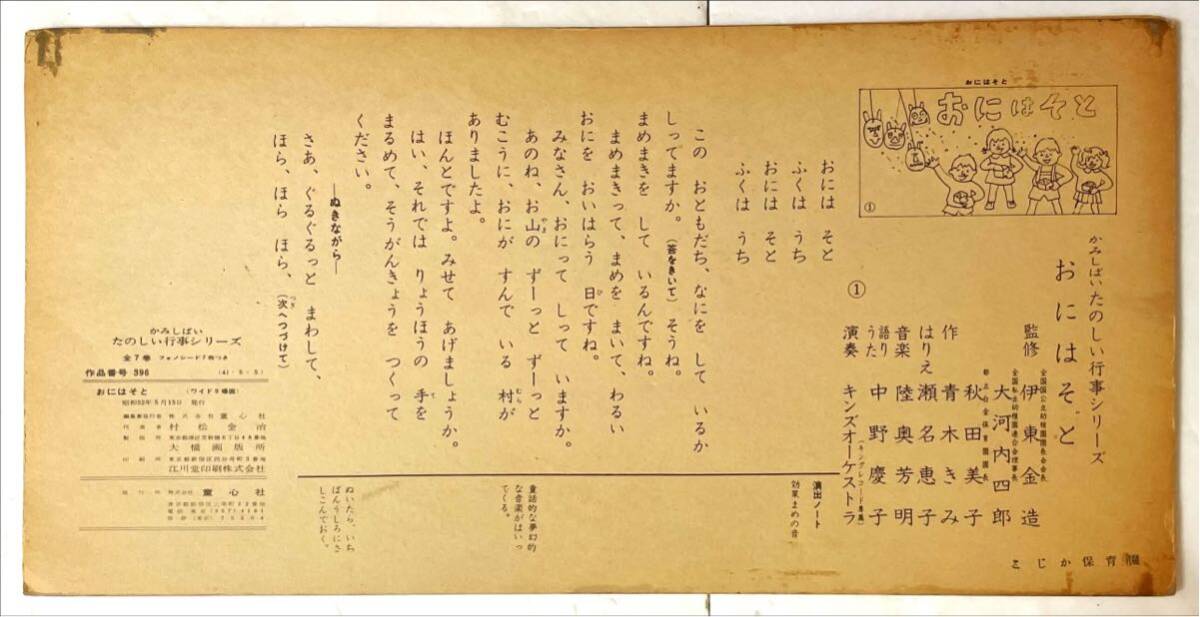 かみしばいたのしい行事シリーズ
おにはそと
監修
全国国公立幼稚園長会会長
伊東金造
全国私立幼稚園連合会理事長
大河内四郎
都立白金保育園園長
秋田美子
作 青木きみ
はりえ 瀬名恵子
音楽 陸奥芳明
語り うた 中野慶子
演奏 キンズオーケストラ
(キングレコード専属)
おにはそと
おにはそと
①
①
おには そと
ふくは うち
おには そと
ふくは うち
この おともだち、なにを して いるか
しってますか。(答をきいて) そうね。
まめまきを して いるんですね。
まめまきって、まめを まいて、わるい
おにを おいはらう 日ですね。
みなさん、おにって しって いますか。
あのね、お山の ずーっと ずーっと
むこうに、おにが すんで いる 村が
ありましたよ。
ほんとですよ。みせて あげましょうか。
はい、それでは りょうほうの 手を
まるめて、そうがんきょうを つくって
ください。
―ぬきながら―
さあ、ぐるぐるっと まわして、
ほら、ほら ほら、(次へつづけて)
演出ノート
効果まめの音
童話的な夢幻的
な音楽がはいっ
てくる。
ぬいたら、いち
ばんうしろにさ
しこんでおく。
かみしばい
たのしい行事シリーズ
全7巻 フォノシート7枚つき
作品番号 396
おにはそと (ワイド8場面)
昭和32年5月15日 発行
株式会社 童心社
代表者 村松金治
大橋画版所
江川堂印刷株式会社
発行所 株式会社 童心社
こじか保育園